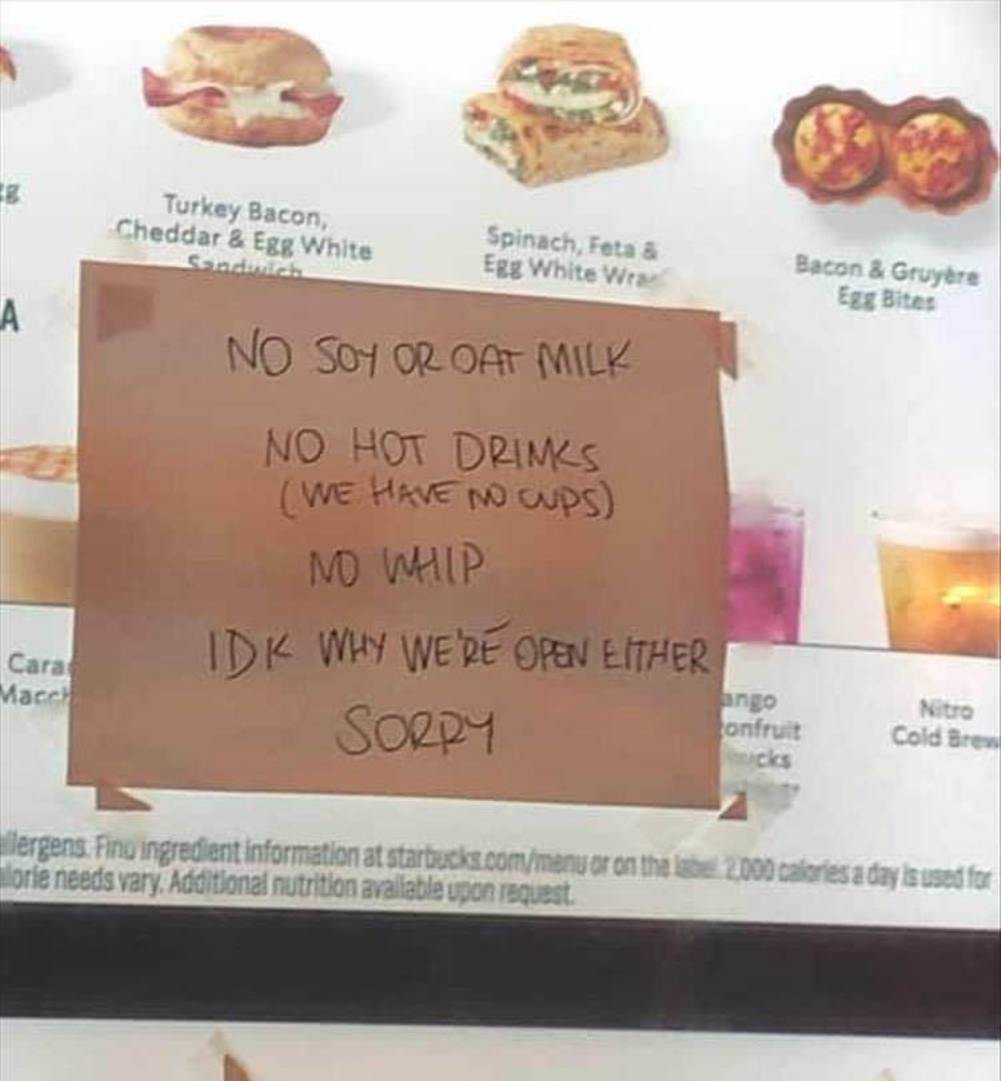 Turkey Bacon,
Cheddar & Egg White
Sandwich
Spinach, Feta &
Egg White Wrap
Bacon & Gruyère
Egg Bites
A
NO SOY OR OAT MILK
NO HOT DRINKS
(WE HAVE NO CUPS)
NO WHIP
IDK WHY WE'RE OPEN EITHER
SORRY
Cara
Macch
ango
onfruit
Nitro
Cold Brew
allergens. Find ingredient information at starbucks.com/menu or on the label. 2,000 calories a day is used for
alorie needs vary. Additional nutrition available upon request.